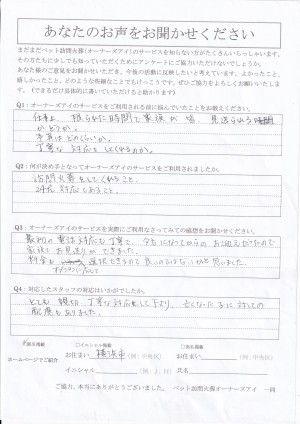 あなたのお声をお聞かせください
まだまだペット訪問火葬(オーナーズアイ)のサービスを知らない方がたくさんいらっしゃいます。
その方たちに少しでも知っていただくためにアンケートにご協力いただけないでしょうか。
あなた様のご意見をお聞かせいただき、今後の活動に反映したいと考えています。よかったこと、
嬉しかったこと、どのような些細なことでもけっこうです。ぜひご協力をよろしくお願いいたしま
す。(できるだけ具体的に書いていただけると助かります)
Q1:オーナーズアイのサービスをご利用される前に悩んでいたことをお教えください。
仕事上、限られた時間で家族が皆、見送られる時間
かどうか。
予算はどのくらいか。
丁寧な対応をしてくれるのか。
Q2:何が決め手となってオーナーズアイのサービスをご利用されましたか。
訪問火葬をしてくれること。
24h対応であること。
Q3:オーナーズアイのサービスを実際にご利用なさってみての感想をお聞かせください。
最初の電話対応も丁寧で、夕方になってからのお迎えだけので
家族でお見送りができました。
料金も選択できるので良いのではないかと思いました。
オプションに応じて
Q4:対応したスタッフの対応はいかがでしたか。
とても親切、丁寧な対応をして下さり、亡くなった子に対しての
配慮もありました。
ホームページでご紹介
お住まい 横浜市 (例:中央区)
お住まい (例:中央区)
イニシャル (例:J.H)
氏名
ご協力、本当にありがとうございました。 ペット訪問火葬オーナーズアイ 一同